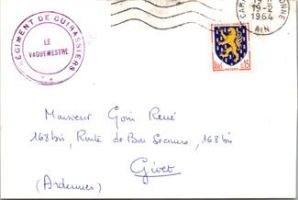 REGIMENT DE CUIRASSIERS
LE
VAGUEMESTRE
19-2
1964
AIN
Monsieur Goin René
168 bis, Route de Bon Secours, 168 bis
Givet
(Ardennes)